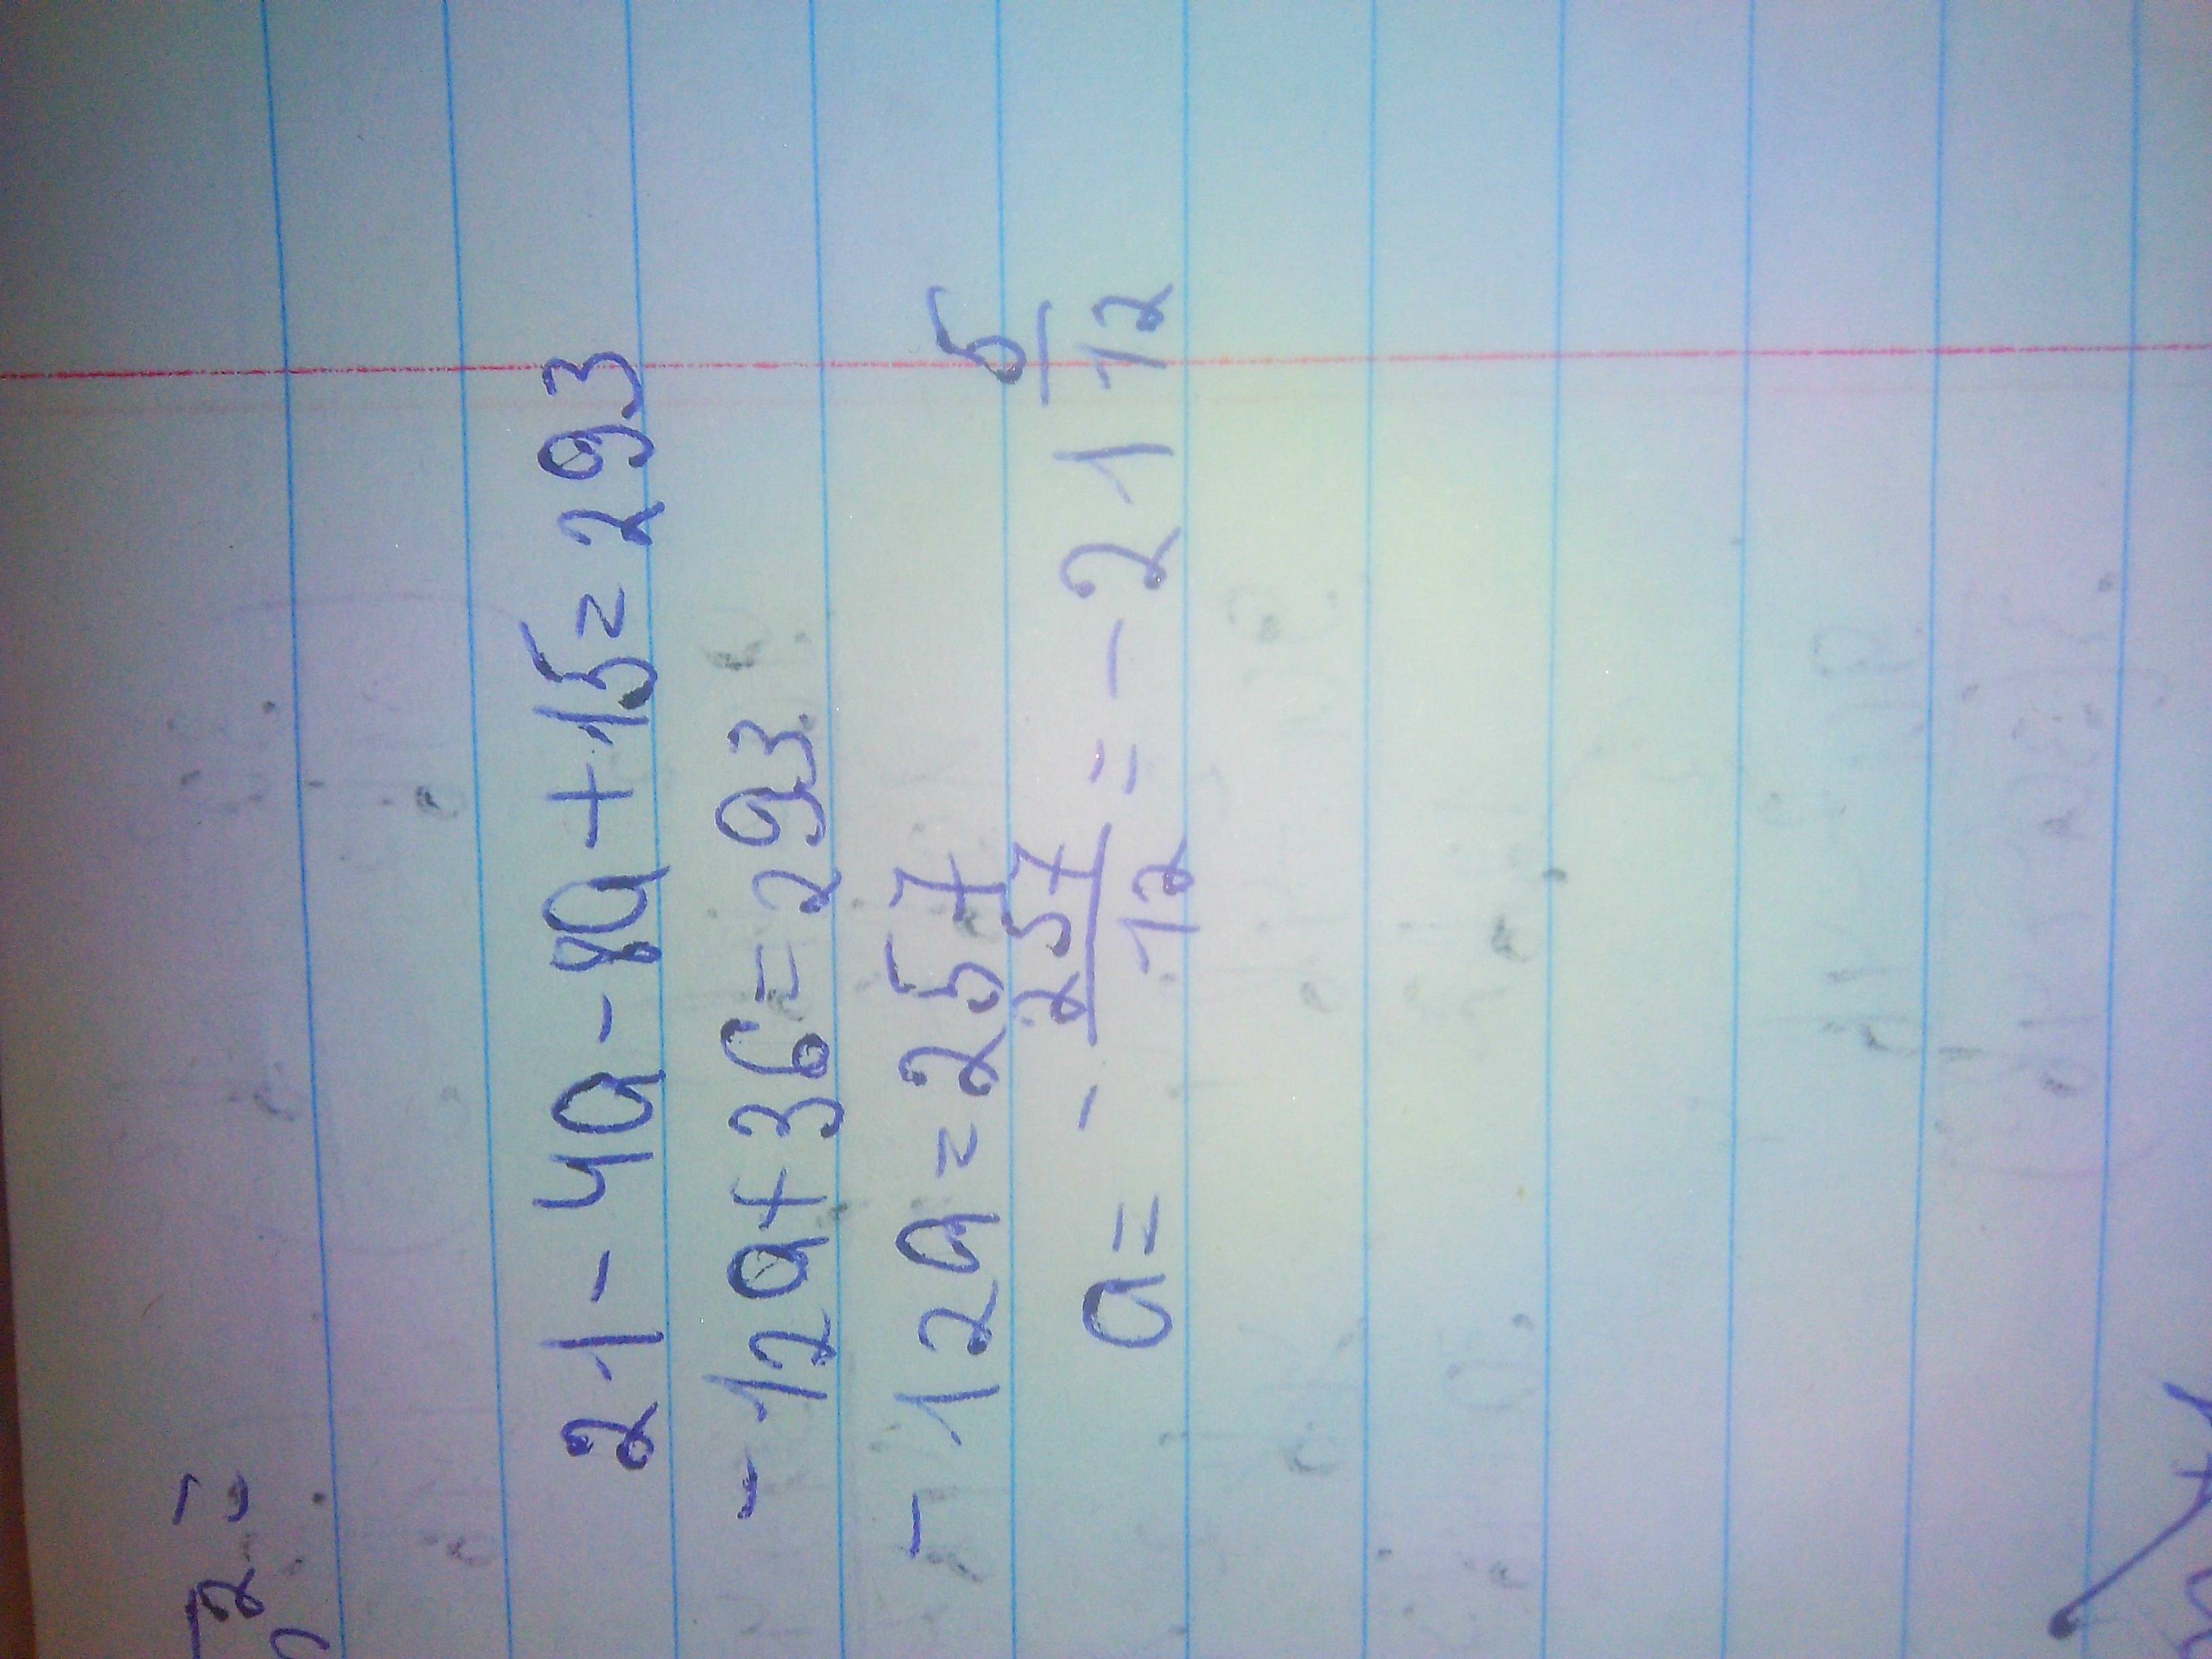 21-4a-8a+15=293
-12a+36=293
-12a=257
a= -257/12 = -21 5/12